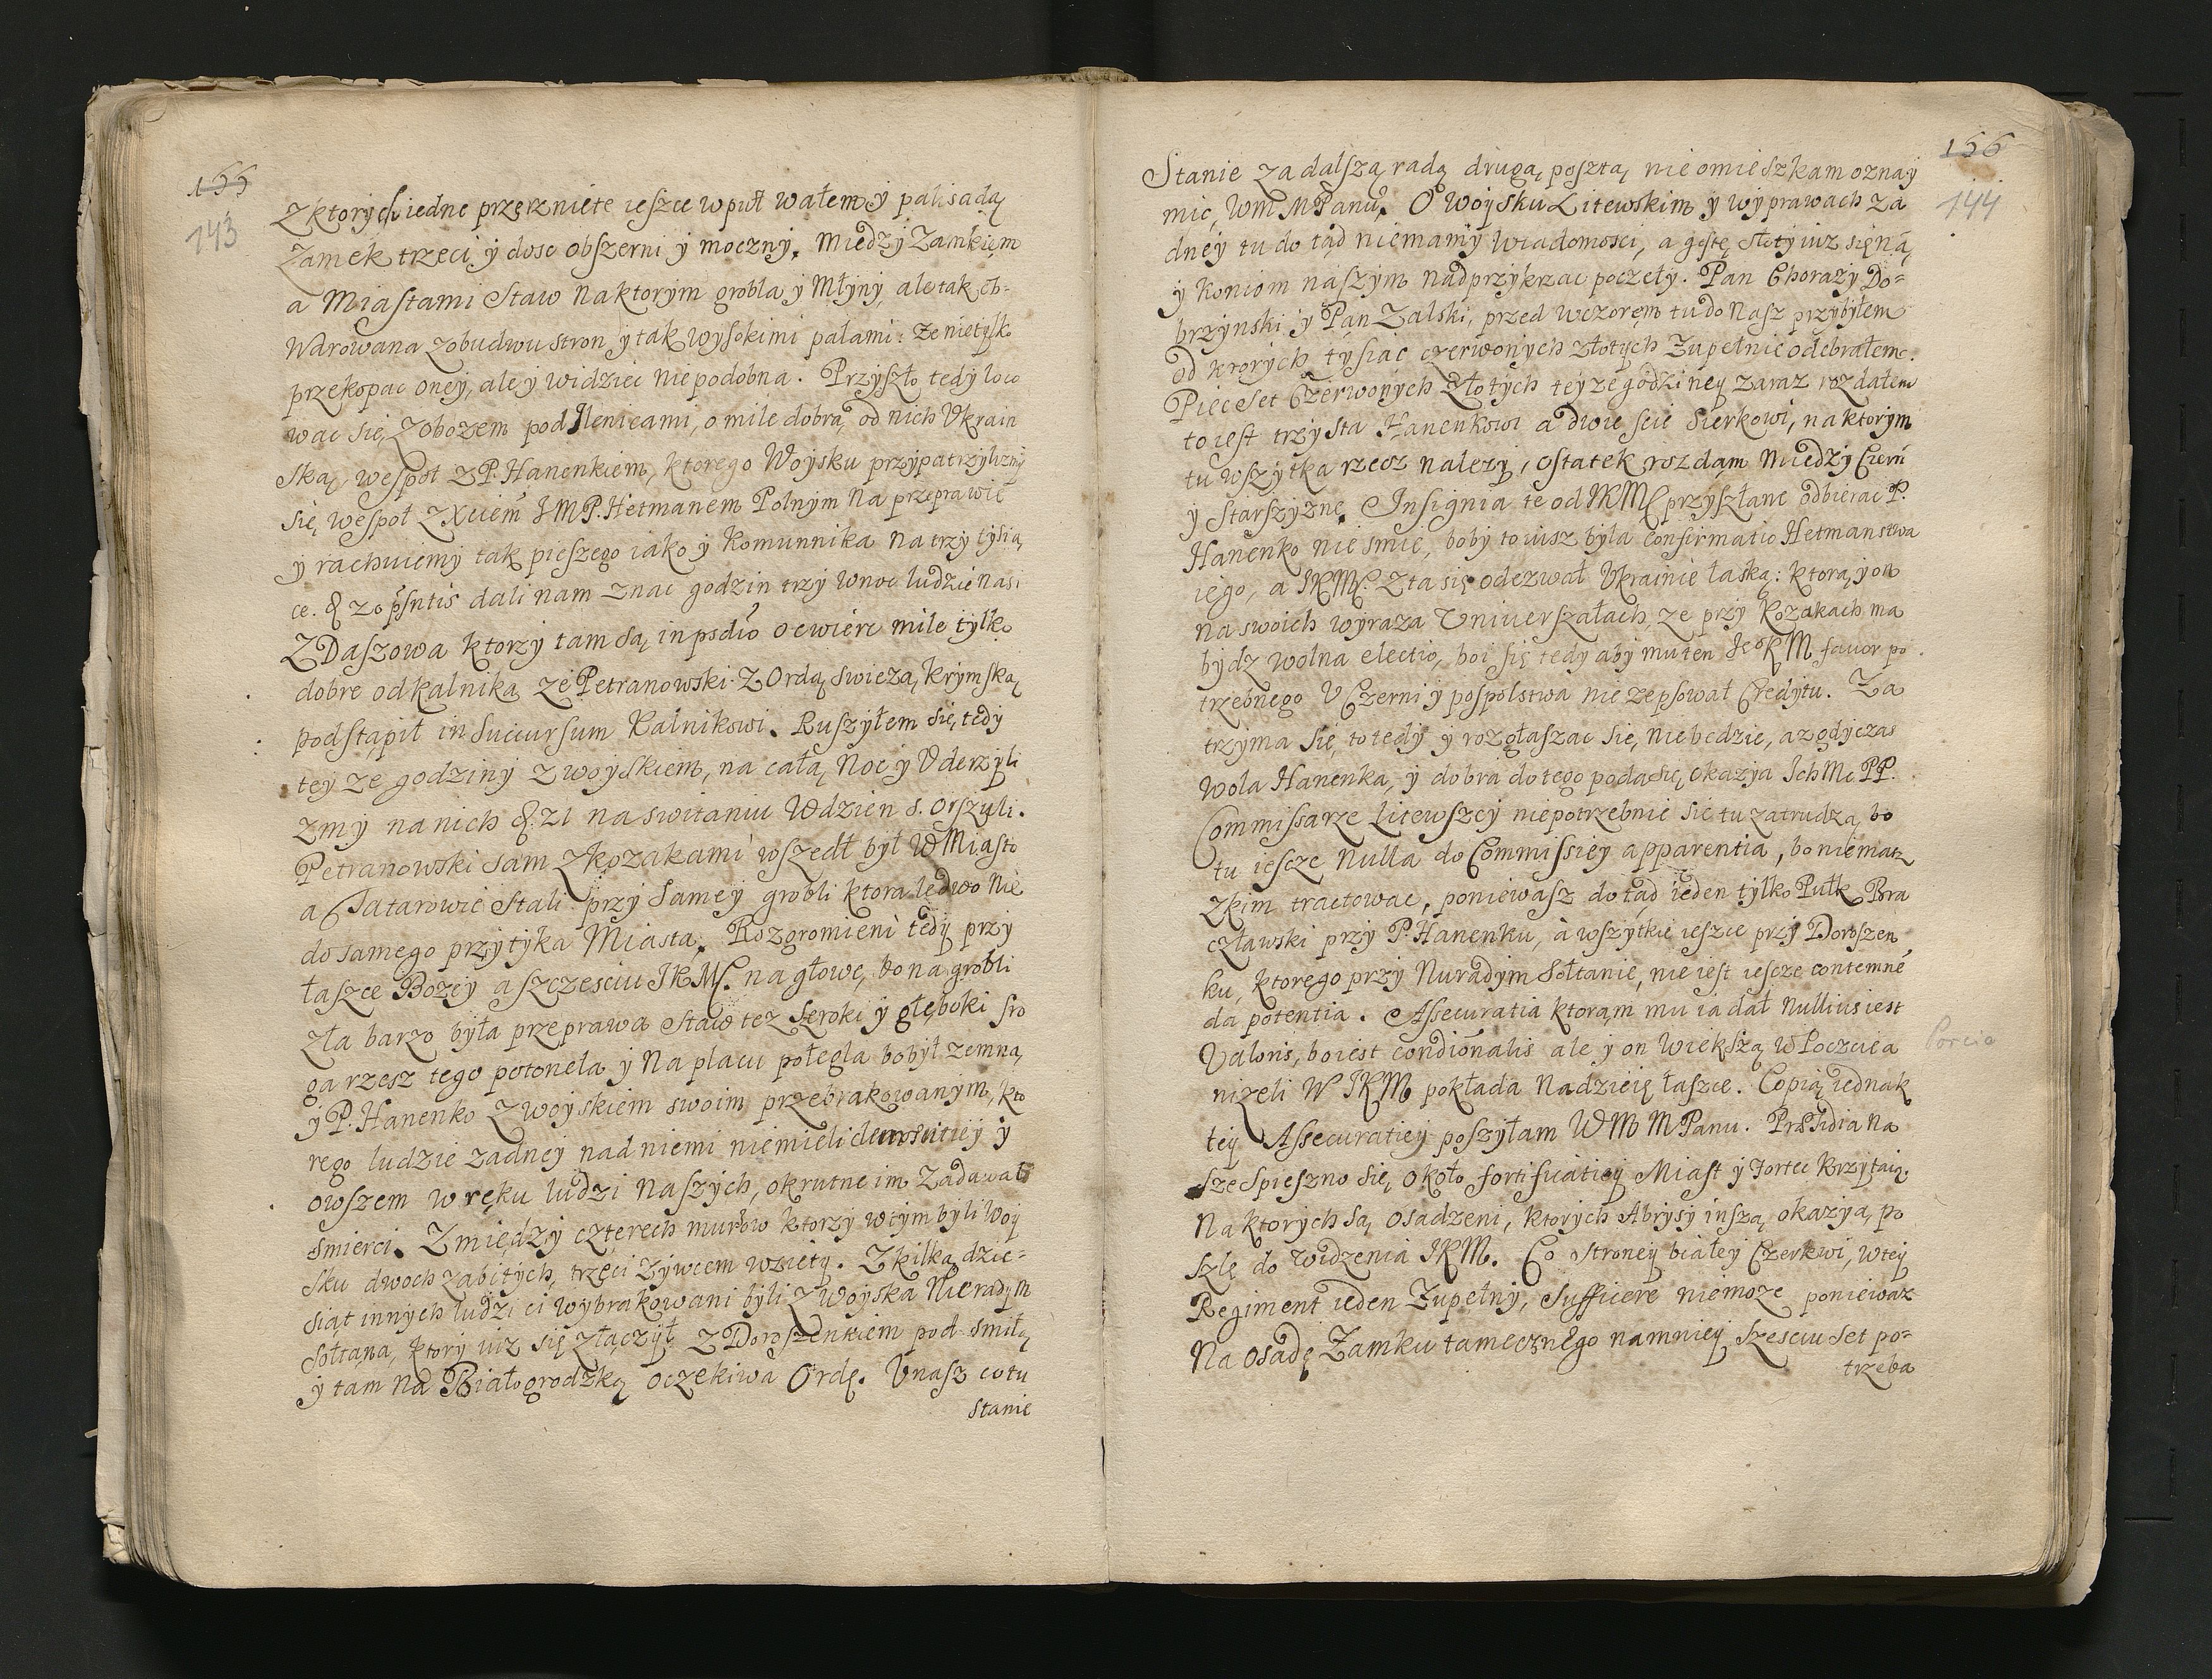 155
143
Zktorych iedne przerzniete ieszce wpuł wałem y palisadą
Zamek trzeci y dosc obszerni y moczny. Miedzy Zamkięm
a Miastami Staw naktorym grobla y Młyny, ale tak ob-
warowana zobudwu stron y tak wysokimi palami: ze nietylko
przekopac oney, ale y widziec niepodobna. Przyszło tedy loco
wac się Zobozem pod Ilenicami, o mile dobrą od nich Vkrain
ską, wespoł z P. Hanenkiem, ktorego Woysku przypatrzylizmy
się wespoł z Xciem IMP. Hetmanem Polnym na przeprawie
y rachuiemy tak pieszego iako y Komunnika na trzy tysią
ce. 8 20 psntis dali nam znac godzin trzy wnoc ludzie nasi
Z Daszowa ktorzy tam są in psdio ocwierc mile tylko
dobre odkalnika ze Petranowski z Ordą swiezą krymską
podstąpił in Succursum Kalnikowi. Ruszyłem się tedy
teyze godziny zwoyskiem, na całą noc y Vderzyli
zmy na nich 8. 21 na switaniu Wdzien S. Orszuli.
Petranowski sam zkozakami wszedł był w Miasto
a Tatarowie Stali przy Samey grobli ktora ledwo nie
do samego przytyka Miasta. Rozgromieni tedy przy
łaszce Bozey a szczesciu IKMc. na głowę, bo na grobli
zła barzo była przeprawa Staw tez szeroki y głęboki sro
ga rzesz tego potoneła y na placu poległa bo był zemną
y P. Hanenko Zwoyskiem swoim przebrakowanym, kto
rego ludzie zadney nad niemi niemieli y
owszem w ręku ludzi naszych, okrutne im zadawali
smierci. Zmiędzy czterech murłow ktorzy wtym byli woy
sku dwoch zabitych, trzeci zywcem wzięty. Zkilką dzie-
siąt innych ludzi ci wybrakowani byli z Woyska Nieradym
Sołtana, ktory iuz się złączył z Doroszenkiem pod Smiłą
y tam na Białogrodzką oczekiwa Ordę. Vnasz co tu
Stanie
156
144
Stanie zadalszą radą drugą posztą nieomieszkam oznay
mic, Wm MPanu. O Woysku Litewskim y wyprawach za
dney tu do tąd niemamy wiadomosci, a gęste słoty iuz się ną
y koniom naszym nadprzykrzac poczeły. Pan Chorazy Do-
brzynski y Pan Zalski, przed wczorem tu do nasz przybyłem
od krorych tysiac czerwonych złotych Zupełnie odebrałem.
Piecset Czerwonych Złotych teyze godziney zaraz rozdałem
to iest trzysta Hanenkowi a dwie scie Sierkowi, na ktorym
tu wszytka rzecz nalezy, ostatek rozdam miedzy Czern
y Starszyznę. Insignia te od IKMc przysłane odbierac P.
Hanenko nie smie, boby to iusz była confirmatio Hetmanstwa
iego, a IKMc. Zta się odezwał Vkrainie łaską: ktorą y on
na swoich wyraza Vniuerszałach, ze przy Kozakach ma
bydz wolna electio, boi się tedy aby mu ten IcoKM fauor po
trzebnego V Czerni y pospolstwa nie zepsował Credytu. Za
trzyma się to tedy y rozgłaszac się niebedzie, az gdy czas
Wola Hanenka, y dobra do tego podasię, okazya IchMc PP.
Commissarze Litewszcy niepotrzebnie się tu zatrudzą, bo
tu iescze nulla do Commissiey apparentia, bo niemasz
Zkim tractowac, poniewasz do tąd ieden tylko Pułk Bra
czławski przy P. Hanenku, a wszytkie ieszce przy Doroszen
ku, ktorego przy Nuradym Sołtanie, nie iest iescze contemnen
da potentia. Assecuratia ktoram mu ia dał nullius iest
Valoris, bo iest condionalis ale y on wiekszą w Poczcie a
Porcie
nizeli W IKM pokłada nadzieię łaszce. Copią iednak
tey Assecuratiey poszyłam WM MPanu. Præsidia na
sze spieszno się około fortificatiey Miast y Fortec krzątaią.
na ktorych są osadzeni, ktorych Abrysy inszą okazyą, po
szlę do widzenia IKM. Co stroney białey Czerkwi, wtey
Regiment ieden Zupełny, Sufficere niemoze poniewaz
na osadę Zamku tamecznego namniey szesciu set po-
trzeba